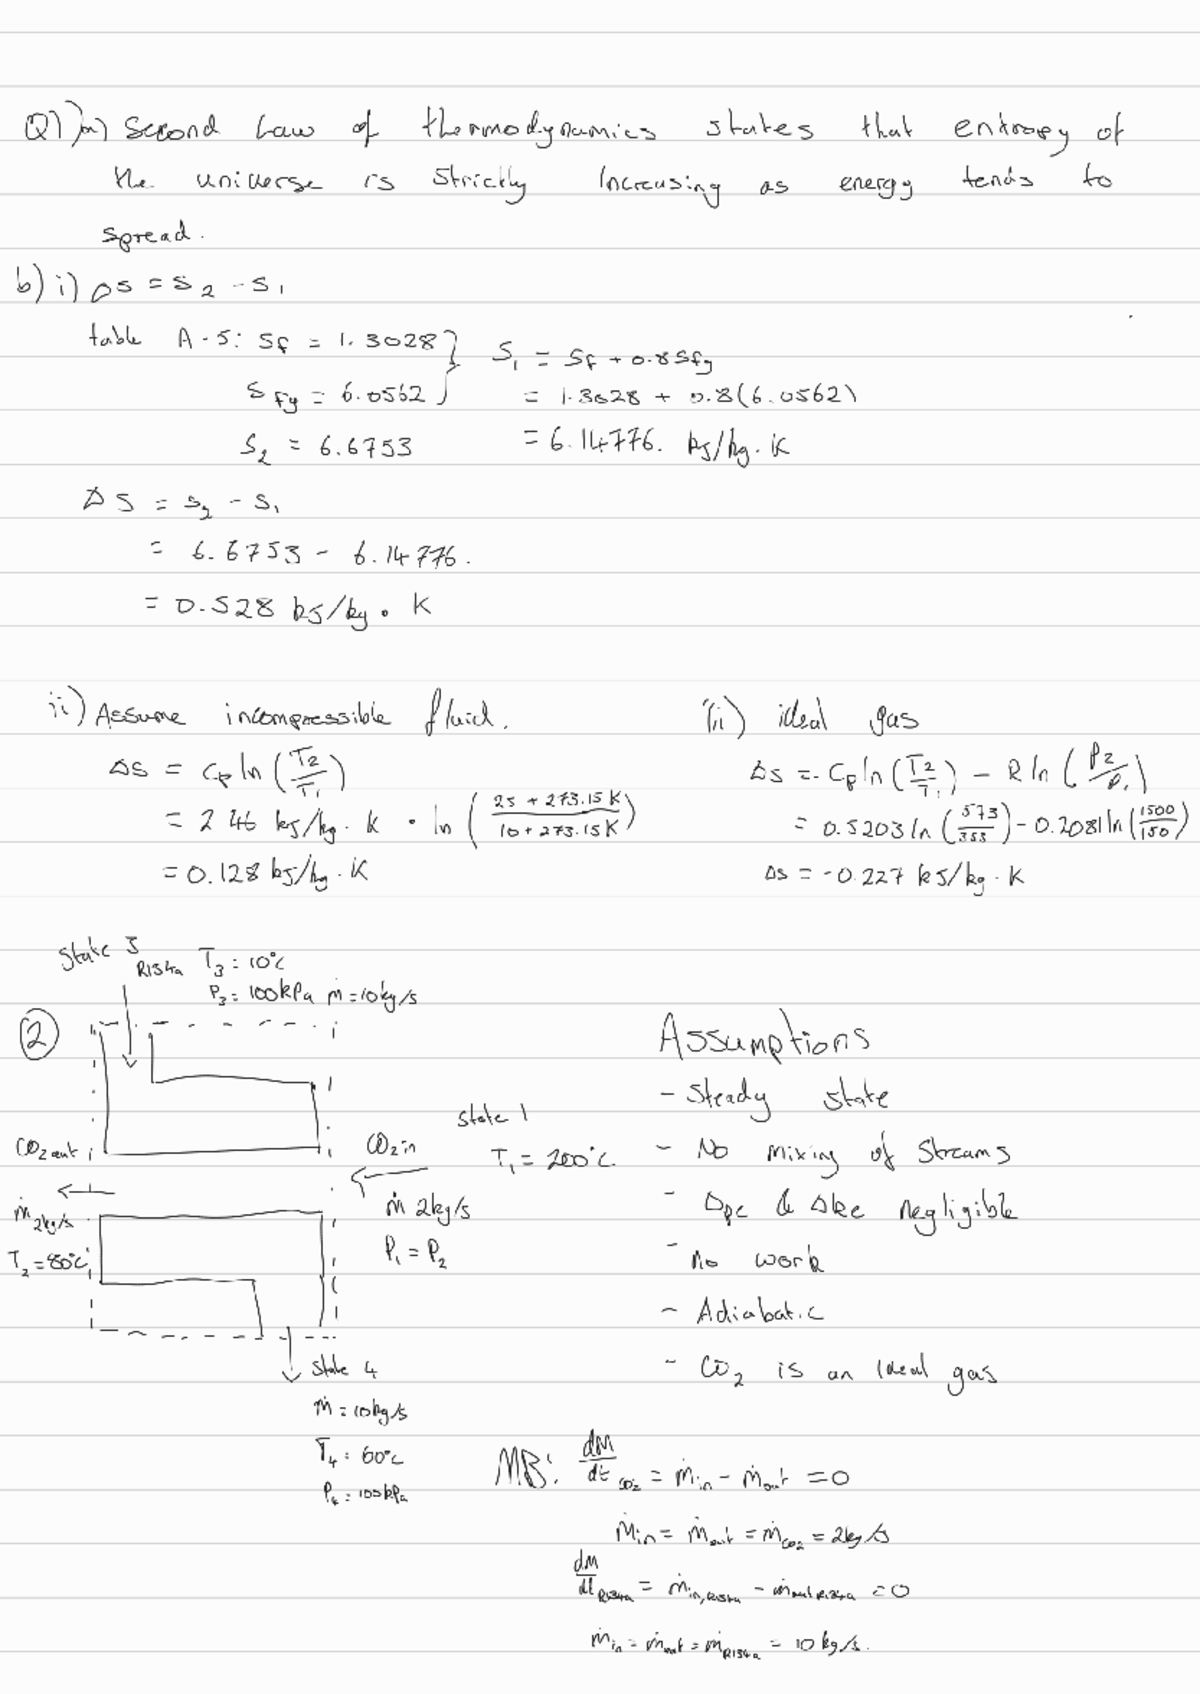 Q1) a) Second Law of thermodynamics states that entropy of
the universe is strictly increasing as energy tends to
spread.
b) i) ΔS = S₂ - S₁
table A-5: Sf = 1.3028
Sfg = 6.0562
S₂ = 6.6753
S₁ = Sf + 0.8Sfg
= 1.3028 + 0.8(6.0562)
= 6.14776. kJ/kg·K
ΔS = S₂ - S₁
= 6.6753 - 6.14776.
= 0.528 kJ/kg · K
ii) Assume incompressible fluid.
ΔS = Cp ln (T₂/T₁)
= 2.46 kJ/kg·K · ln (25 + 273.15K / 10 + 273.15K)
= 0.128 kJ/kg·K
iii) ideal gas
ΔS = Cp ln (T₂/T₁) - R ln (P₂/P₁)
= 0.5203 ln (573/353) - 0.2081 ln (1500/150)
ΔS = -0.227 kJ/kg·K
②
State 3
R134a T₃ = 10°C
P₃ = 100kPa ṁ = 10kg/s
CO₂ out
ṁ 2kg/s
T₂ = 80°C
CO₂ in
ṁ 2kg/s
P₁ = P₂
State 1
T₁ = 200°C
State 4
ṁ = 10kg/s
T₄ = 60°C
P₄ = 100kPa
Assumptions
- Steady state
- No mixing of Streams
- Δpe & Δke negligible
- no work
- Adiabatic
- CO₂ is an Ideal gas
MB: dM/dt CO₂ = ṁin - ṁout = 0
ṁin = ṁout = ṁCO₂ = 2kg/s
dM/dt R134a = ṁin,R134a - ṁout R134a = 0
ṁin = ṁout = ṁR134a = 10 kg/s.